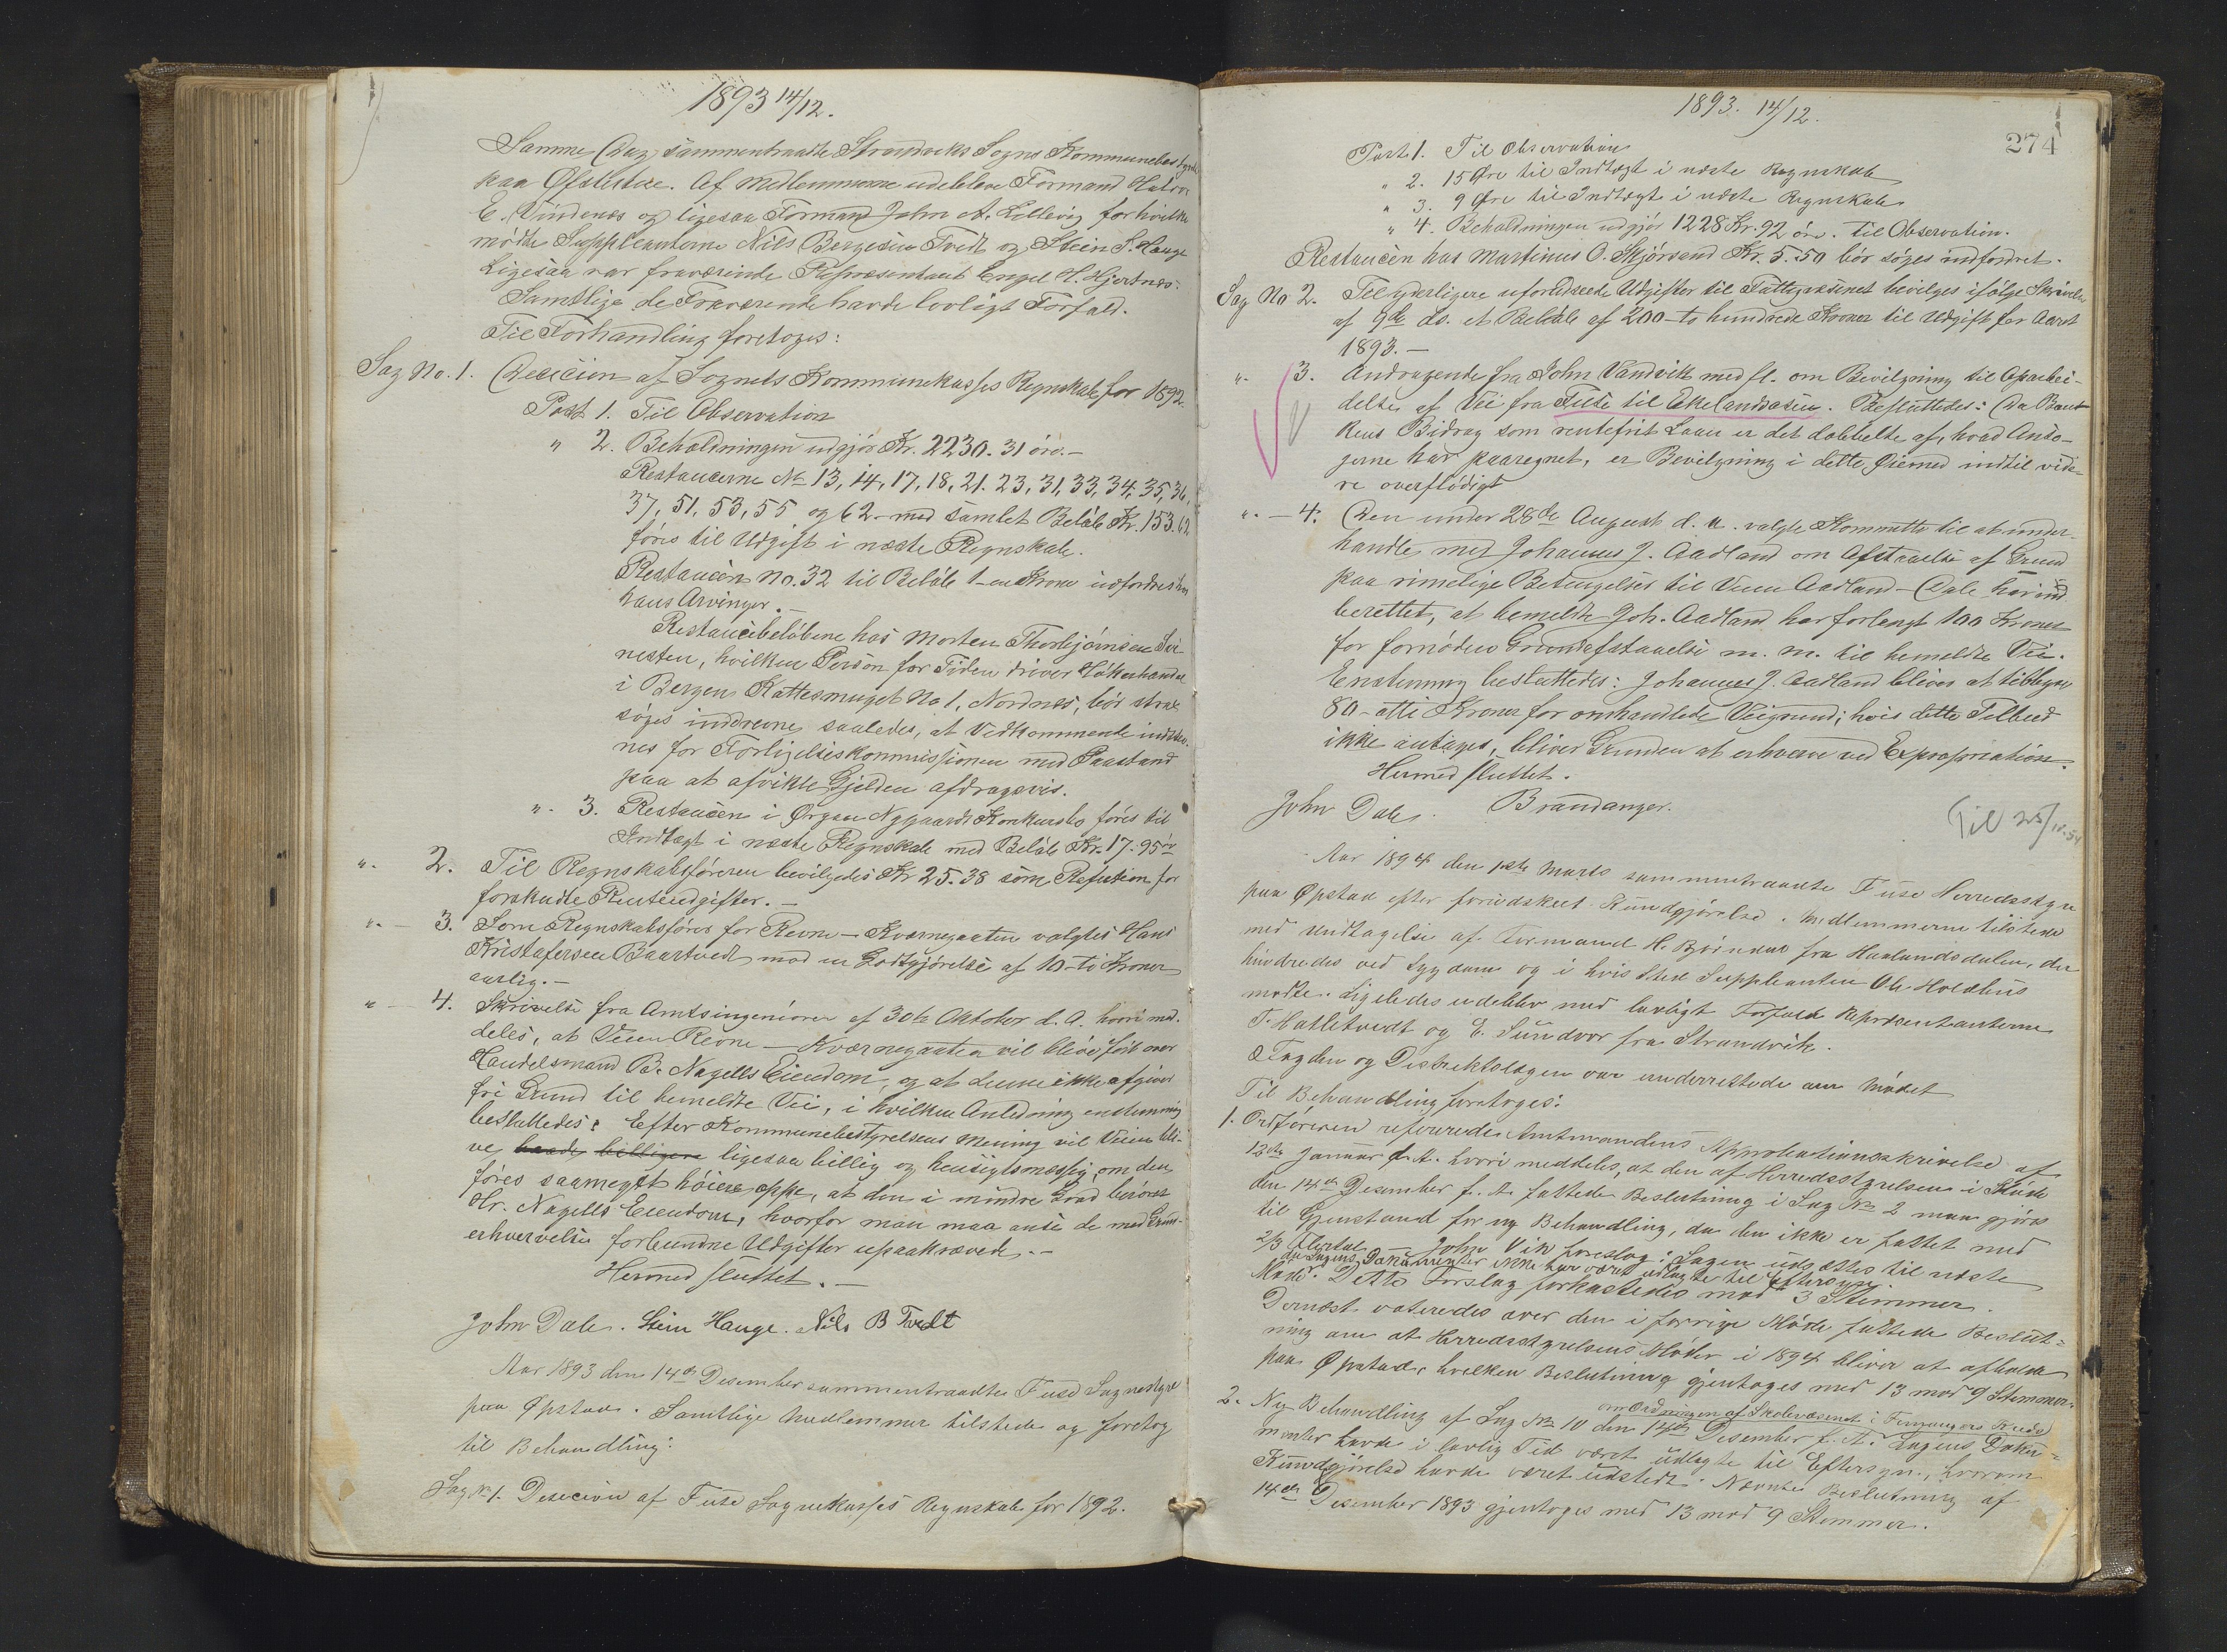 1893 14/12.
Samme Dag sammentraadte Strandviks Sogns Kommunebestyrelse
paa Øfsthus. Af Medlemmerne udebleve Formand Halvor
E. Vindenes og ligesaa Formand John A. Lillevig for hvilke
mødte Suppleanterne Nils Bergesen Tvedt og Stein S. Hauge
Ligesaa var fraværende Repræsentant Engel H. Hjertnes.
Samtlige de Fraværende havde lovligt Forfald.
Til Forhandling foretoges:
Sag No. 1. Decision af Sognets Kommunekasses Regnskab for 1892.
Post 1. Til Observation
" 2. Beholdningen udgjør Kr. 2230.31 øre.-
Restancerne No 13, 14, 17, 18, 21. 23, 31, 33, 34, 35, 36,
37, 51, 53, 55 og 62 - med samlet Beløb Kr. 153.62
føres til Udgift i næste Regnskab.
Restancen No. 32 til Beløb 1-en Krone indfordres hos
hans Arvinger.-
Restancebeløbene hos Morten Thorbjørnsen
nesten, hvilken Person for Tiden driver Høkerhandel
i Bergen Kattesmuget No 1, Nordnes, bør strax
søges inddrevne saaledes, at Vedkommende indstev-
nes for Forligelseskommissionen med Paastand
paa at afvikle Gjelden afdragsvis.
" - 3. Restancen i Ørgen Nygaards Konkursbo føres til
Indtægt i næste Regnskab med Beløb Kr. 17.95 ør
" - 2. Til Regnskabsføreren bevilgedes Kr 25.38 som Refusion for
forskudte Renteudgifter.-
" - 3. Som Regnskabsfører for Revne - Kvernegaaten valgtes Hans
Kristofersen Baartvedt mod en Godtgjørelse af 10-ti Kroner
aarlig.-
" - 4. Skrivelse fra Amtsingeniøren af 30te Oktober d. A. hvori med-
deles, at Veien Revne - Kværnegaaten vil blive ført over
Handelsmand B. Nagells Eiendom, og at denne ikke afgiver
fri Grund til bemeldte Vei, i hvilken Anledning enstemmig
besluttedes: Efter Kommunebestyrelsens Mening vil Veien bli-
ve baade billigere ligesaa billig og hensigtsmæssig, om den
føres saameget høiere oppe, at den i mindre Grad berører
Hr. Nagells Eiendom, hvorfor man maa anse de med Grun-
erhvervelse forbundne Udgifter upaakrævede.-
Hermed sluttet.-
John Dale. Stein Hauge. Nils B Tvedt
Aar 1893 den 14de Desember sammentraadte Fuse Sognestyre
paa Øpstad. Samtlige Medlemmer tilstede og foretog
til Behandling:
Sag No 1. Desecion af Fuse Sognekasses Regnskab for 1892.
1893. 14/12.
274
Post 1. Til Observation
" 2. 15 Øre til Indtægt i næste Regnskab
" 3. 9 Øre til Indtægt i næste Regnskab
" 4. Beholdningen udgjør 1228 Kr. 92 øre. til Observation.
Restancen hos Martinus O. Skjørsand Kr. 5.50 bør søges indfordret.
Sag No 2. Til yderligere uforudseede Udgifter til Fattigvæsenet bevilges ifølge Skrivelse
af 9de ds. et Beløb af 200 - to hundrede Kroner til Udgift for Aaret
1893.-
" - 3. Andragende fra John Vandvik med fl. om Bevilgning til Oparbei-
delse af Vei fra Fuse til Ekelandsosen. Besluttedes: Da Ban-
kens Bidrag som rentefrit Laan er det dobbelte af, hvad Anso-
gerne har paaregnet, er Bevilgning i dette Øiemed indtil vide-
re overflødigt
" - 4. Den under 28de August d. A. valgte Kommitte til at under-
handle med Johannes J. Aadland om Afstaaelse af Grund
paa rimelige Betingelser til Veien Aadland - Dale har ind
berettet, at bemeldte Joh. Aadland har forlangt 100 Kroner
for fornøden Grundafstaaelse m. m. til bemeldte Vei.
Enstemmig besluttedes: Johannes J. Aadland bliver at tilbyde
80 - otti Kroner for omhandlede Veigrund; hvis dette Tilbud
ikke antages, bliver Grunden at erhverve ved Expropriation.
Hermed sluttet.
John Dale. Brandanger.
Til 25/10.54
Aar 1894 den 1ste Marts sammentraadte Fuse Herredsstyre
paa Øpstad efter forudskeet Kundgjørelse. Medlemmerne tilstede
med Undtagelse af Formand H. Bjørndal fra Haalandsdalen, der
hindredes ved Sygdom og i hvis Sted Suppleanten Ole Holdhus
mødte. Ligeledes udeblev med lovligt Forfald Repræsentanterne
T. Hatletvedt og E. Sundvor fra Strandvik.
Fogden og Distriktslægen var underrettede om Mødet
Til Behandling foretoges:
1. Ordføreren refererede Amtmandens Approbationsskrivelse af
13de Januar d. A. hvori meddeles, at den af Herredsstyrelsen i Møde
den 14de Desember f. A. fattede Beslutning i Sag No 2 maa gjøres
til Gjenstand for ny Behandling, da den ikke er fattet med
2/3 Flertal. - John Vik foreslog: Sagen udsættes til næste
da Sagens Dokumenter ikke har været udlagte til Eftersyn
Møde. Dette Forslag forkastedes mod 3 Stemmer.
Dernæst voteredes over den i forrige Møde fattede Beslut-
ning om at Herredsstyrelsens Møder i 1894 bliver at afholde
paa Øpstad, hvilken Beslutning gjentoges med 13 mod 9 Stemmer.
om Ordningen af Skolevæsenet i Kreds
2. Ny Behandling af Sag No 10 den 14de Desember f. A. Sagens Doku-
menter havde i lovlig Tid været udlagte til Eftersyn, hvorom
Kundgjørelse havde været udstedt. Nævnte Beslutning af
14de Desember 1893 gjentoges med 13 mod 9 Stemmer.